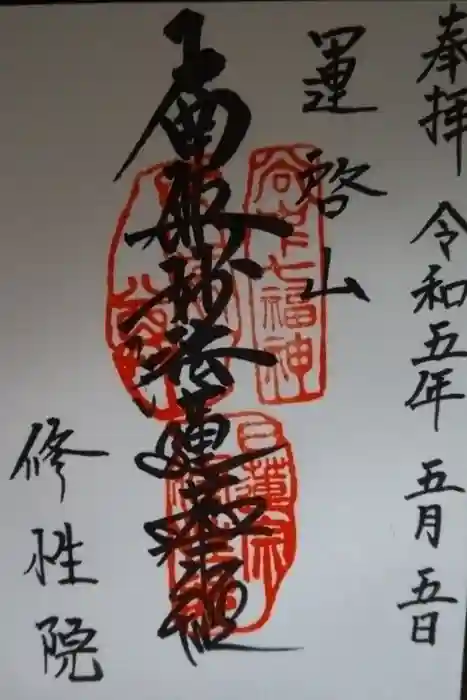 奉拝 令和五年 五月 五日
運啓山
南無妙法蓮華経
谷中七福神
日蓮宗
修性院